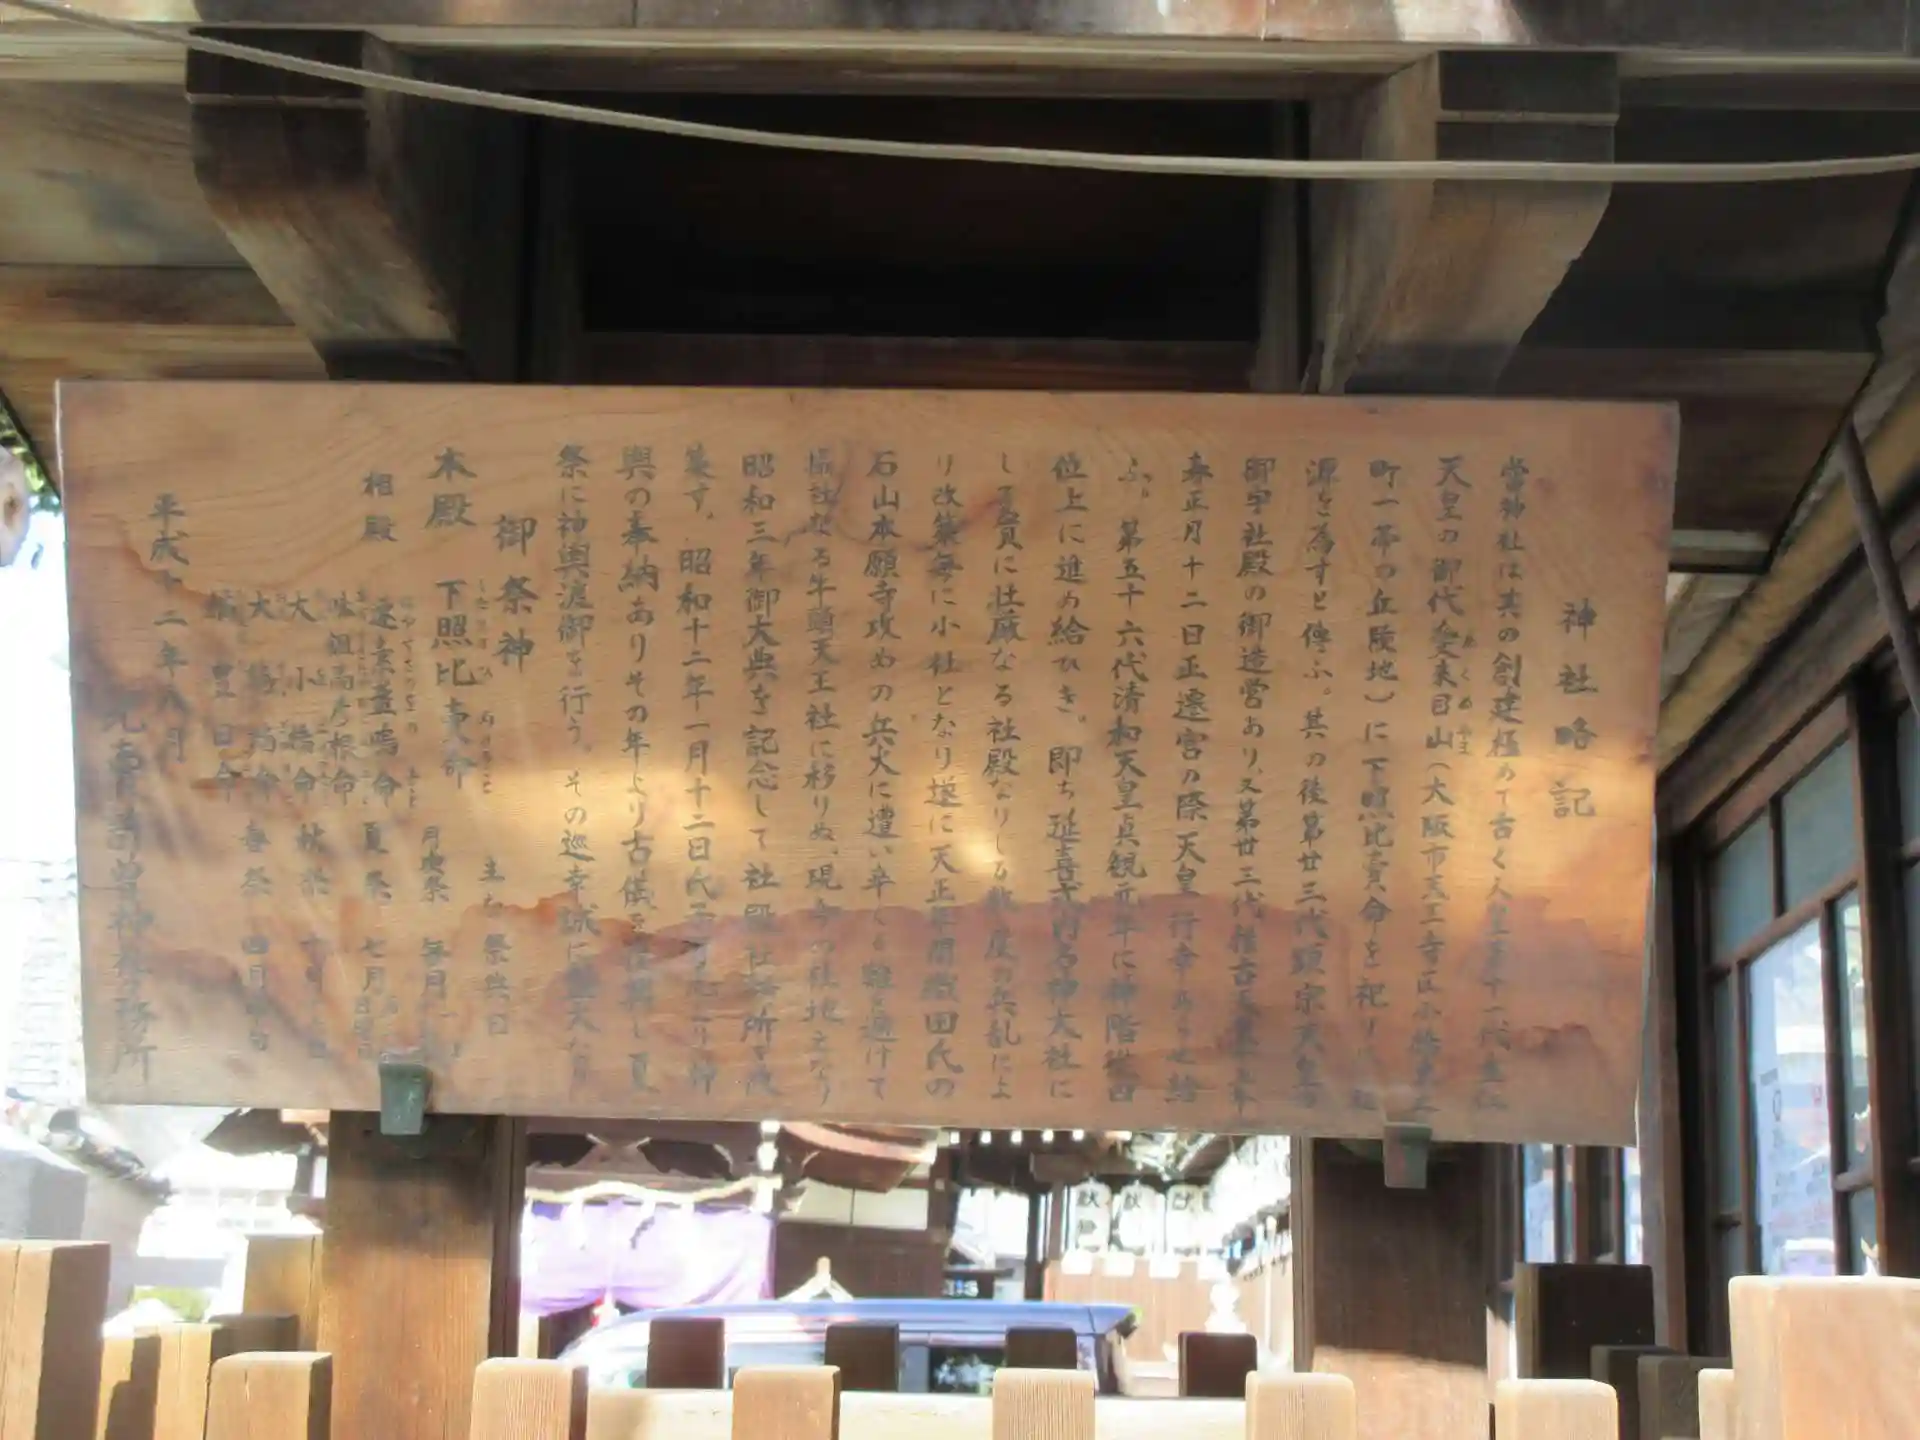 神社略記
当神社は其の創建極めて古く人皇第十一代垂仁
天皇の御代愛来目山(大阪市天王寺区小橋東之
町一帯の丘陵地)に下照比売命を祀り
源を為すと傳ふ。其の後第廿三代顕宗天皇の
御宇社殿の御造営あり、又第廿三代推古天皇
春正月十二日正遷宮の際天皇行幸あらせ給
ふ。第五十六代清和天皇貞観元年に神階従四
位上に進め給ひき。即ち延喜式内名神大社に
して
に壮厳なる社殿なりしも数度の兵乱によ
り改築毎に小社となり遂に天正年間織田氏の
石山本願寺攻めの兵火に遭い辛くも難を避けて
摂社なる牛頭天王社に移りぬ、現今の社地之なり
昭和三年御大典を記念して社殿社務所を改
築す。昭和十二年一月十二日氏子
より神
輿の奉納ありその年より古儀を復興し夏
祭に神輿渡御を行う。その巡幸誠に盛大なり
御祭神 主な祭典日
本殿 下照比売命 月次祭 毎月
相殿 速素盞嗚命 夏祭 七月
味耜高彦根命
大小橋命 秋祭
大鷦鷯命 春祭 四月
橘豊日命
平成十二年八月
比売許曽神社社務所